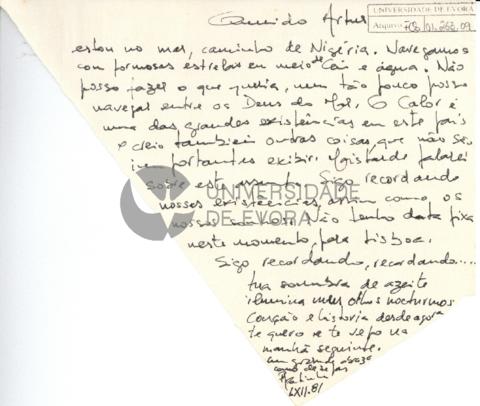 Querido Artur
UNIVERSIDADE DE EVORA
Arquivo
estou no mar, caminho de Nigéria. Navegamos
con formosas estrelas en meio de Céu e água. Não
posso fazer o que queria, nem tão pouco posso
navegar entre os Deus do Mar. O Calor é
uma das grandes existências en este país
e creio tambien outras coisas, que não
importantes exibir. Mais tarde falarei
sobre este assunto. Sigo recordando
nossas existências, assim como os
nossos sonhos. Não tenho data fixa
neste momento, pela Lisboa.
Sigo recordando, recordando....
tua sombra de azeite
ilumina meus olhos nocturnos
Coração e historia desde agora
te quero e te vejo na
manhã seguinte.
um grande abraço
XII.81
UNIVERSIDADE
DE EVORA